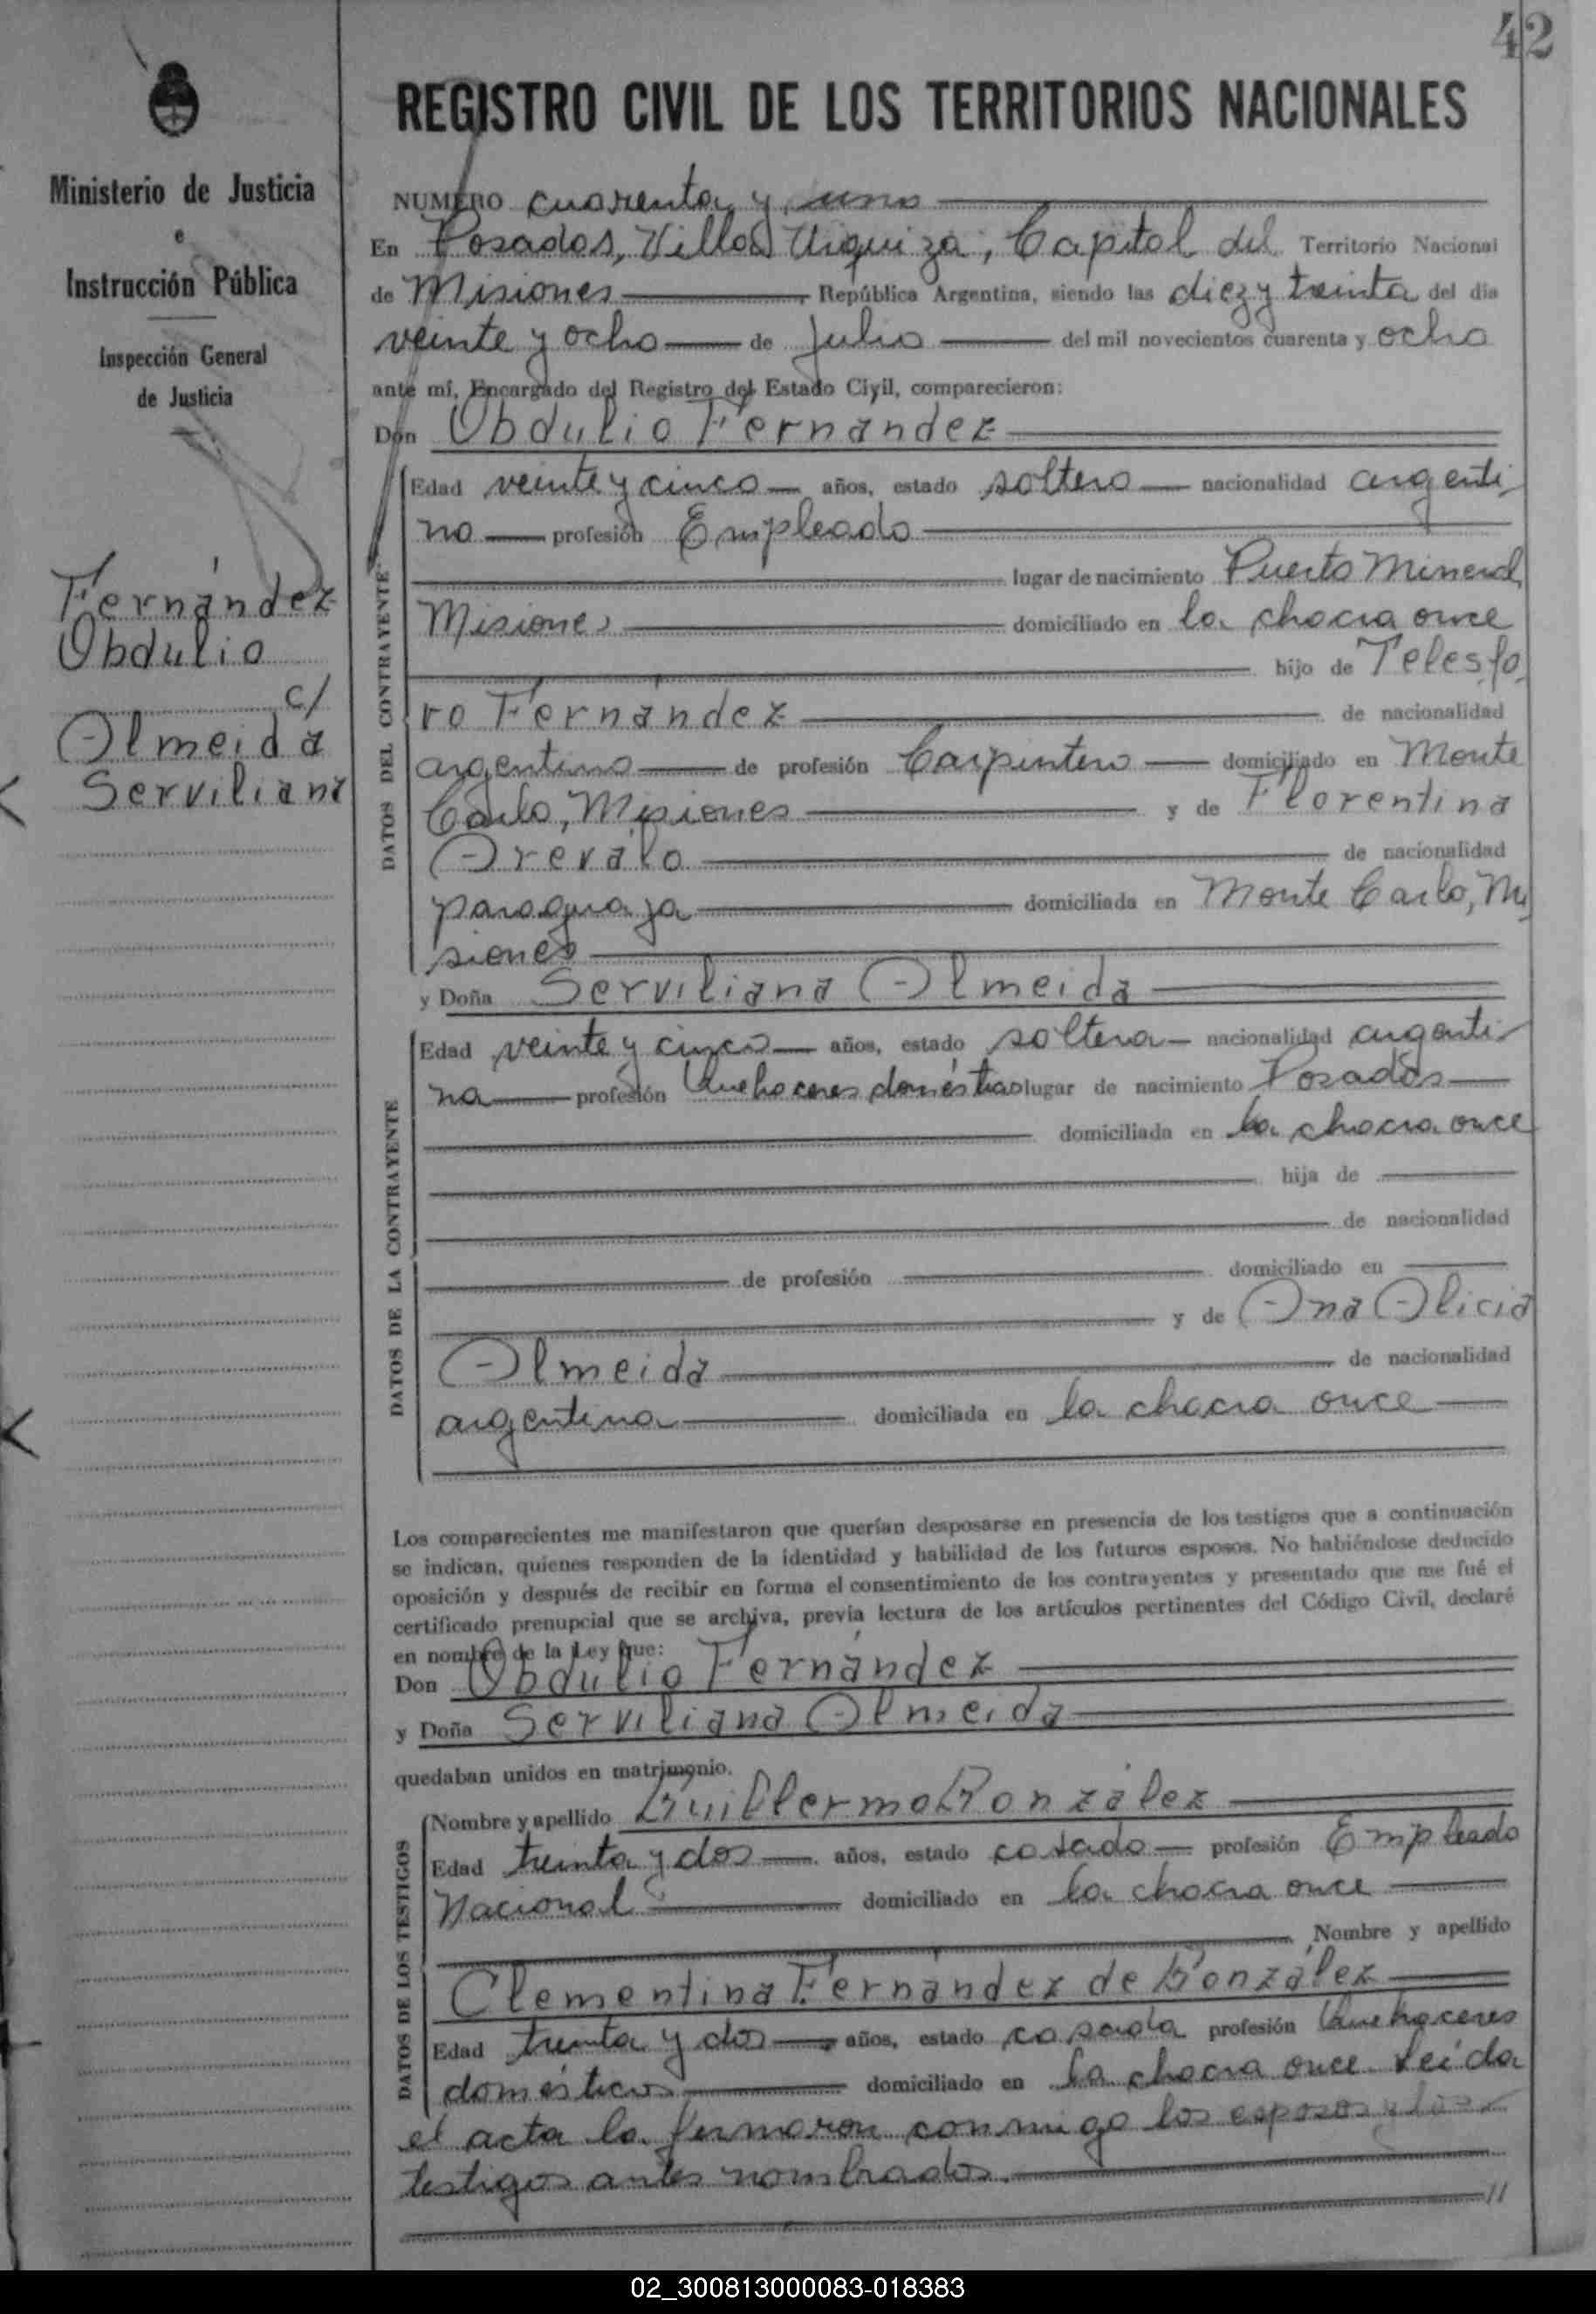 42
Ministerio de Justicia
e
Instrucción Pública
Inspección General
de Justicia
Fernández
Obdulio
c/
Almeida
Serviliana
REGISTRO CIVIL DE LOS TERRITORIOS NACIONALES
NUMERO cuarenta y uno
En Posadas, Villa Urquiza, Capital del Territorio Nacional
de Misiones República Argentina, siendo las diez y treinta del día
veinte y ocho de Julio del mil novecientos cuarenta y ocho
ante mí, Encargado del Registro del Estado Civil, comparecieron:
Don Obdulio Fernández
DATOS DEL CONTRAYENTE
Edad veinte y cinco años, estado soltero nacionalidad argenti
no profesión Empleado
lugar de nacimiento Puerto Mineral,
Misiones domiciliado en la chacra once
hijo de Telesfo
ro Fernández de nacionalidad
argentino de profesión Carpintero domiciliado en Monte
Carlo, Misiones y de Florentina
Arévalo de nacionalidad
paraguaya domiciliada en Monte Carlo, Mi
siones
y Doña Serviliana Almeida
DATOS DE LA CONTRAYENTE
Edad veinte y cinco años, estado soltera nacionalidad argenti
na profesión Quehaceres domésticos lugar de nacimiento Posadas
domiciliada en la chacra once
hija de
de nacionalidad
de profesión domiciliado en
y de Ana Alicia
Almeida de nacionalidad
argentina domiciliada en la chacra once
Los comparecientes me manifestaron que querían desposarse en presencia de los testigos que a continuación
se indican, quienes responden de la identidad y habilidad de los futuros esposos. No habiéndose deducido
oposición y después de recibir en forma el consentimiento de los contrayentes y presentado que me fué el
certificado prenupcial que se archiva, previa lectura de los artículos pertinentes del Código Civil, declaré
en nombre de la Ley que:
Don Obdulio Fernández
y Doña Serviliana Almeida
quedaban unidos en matrimonio.
DATOS DE LOS TESTIGOS
Nombre y apellido Guillermo González
Edad treinta y dos años, estado casado profesión Empleado
Nacional domiciliado en la chacra once
Nombre y apellido
Clementina Fernández de González
Edad treinta y dos años, estado casada profesión Quehaceres
domésticos domiciliado en la chacra once. Leída
el acta la firmaron conmigo los esposos y los
testigos antes nombrados.
02_300813000083-018383